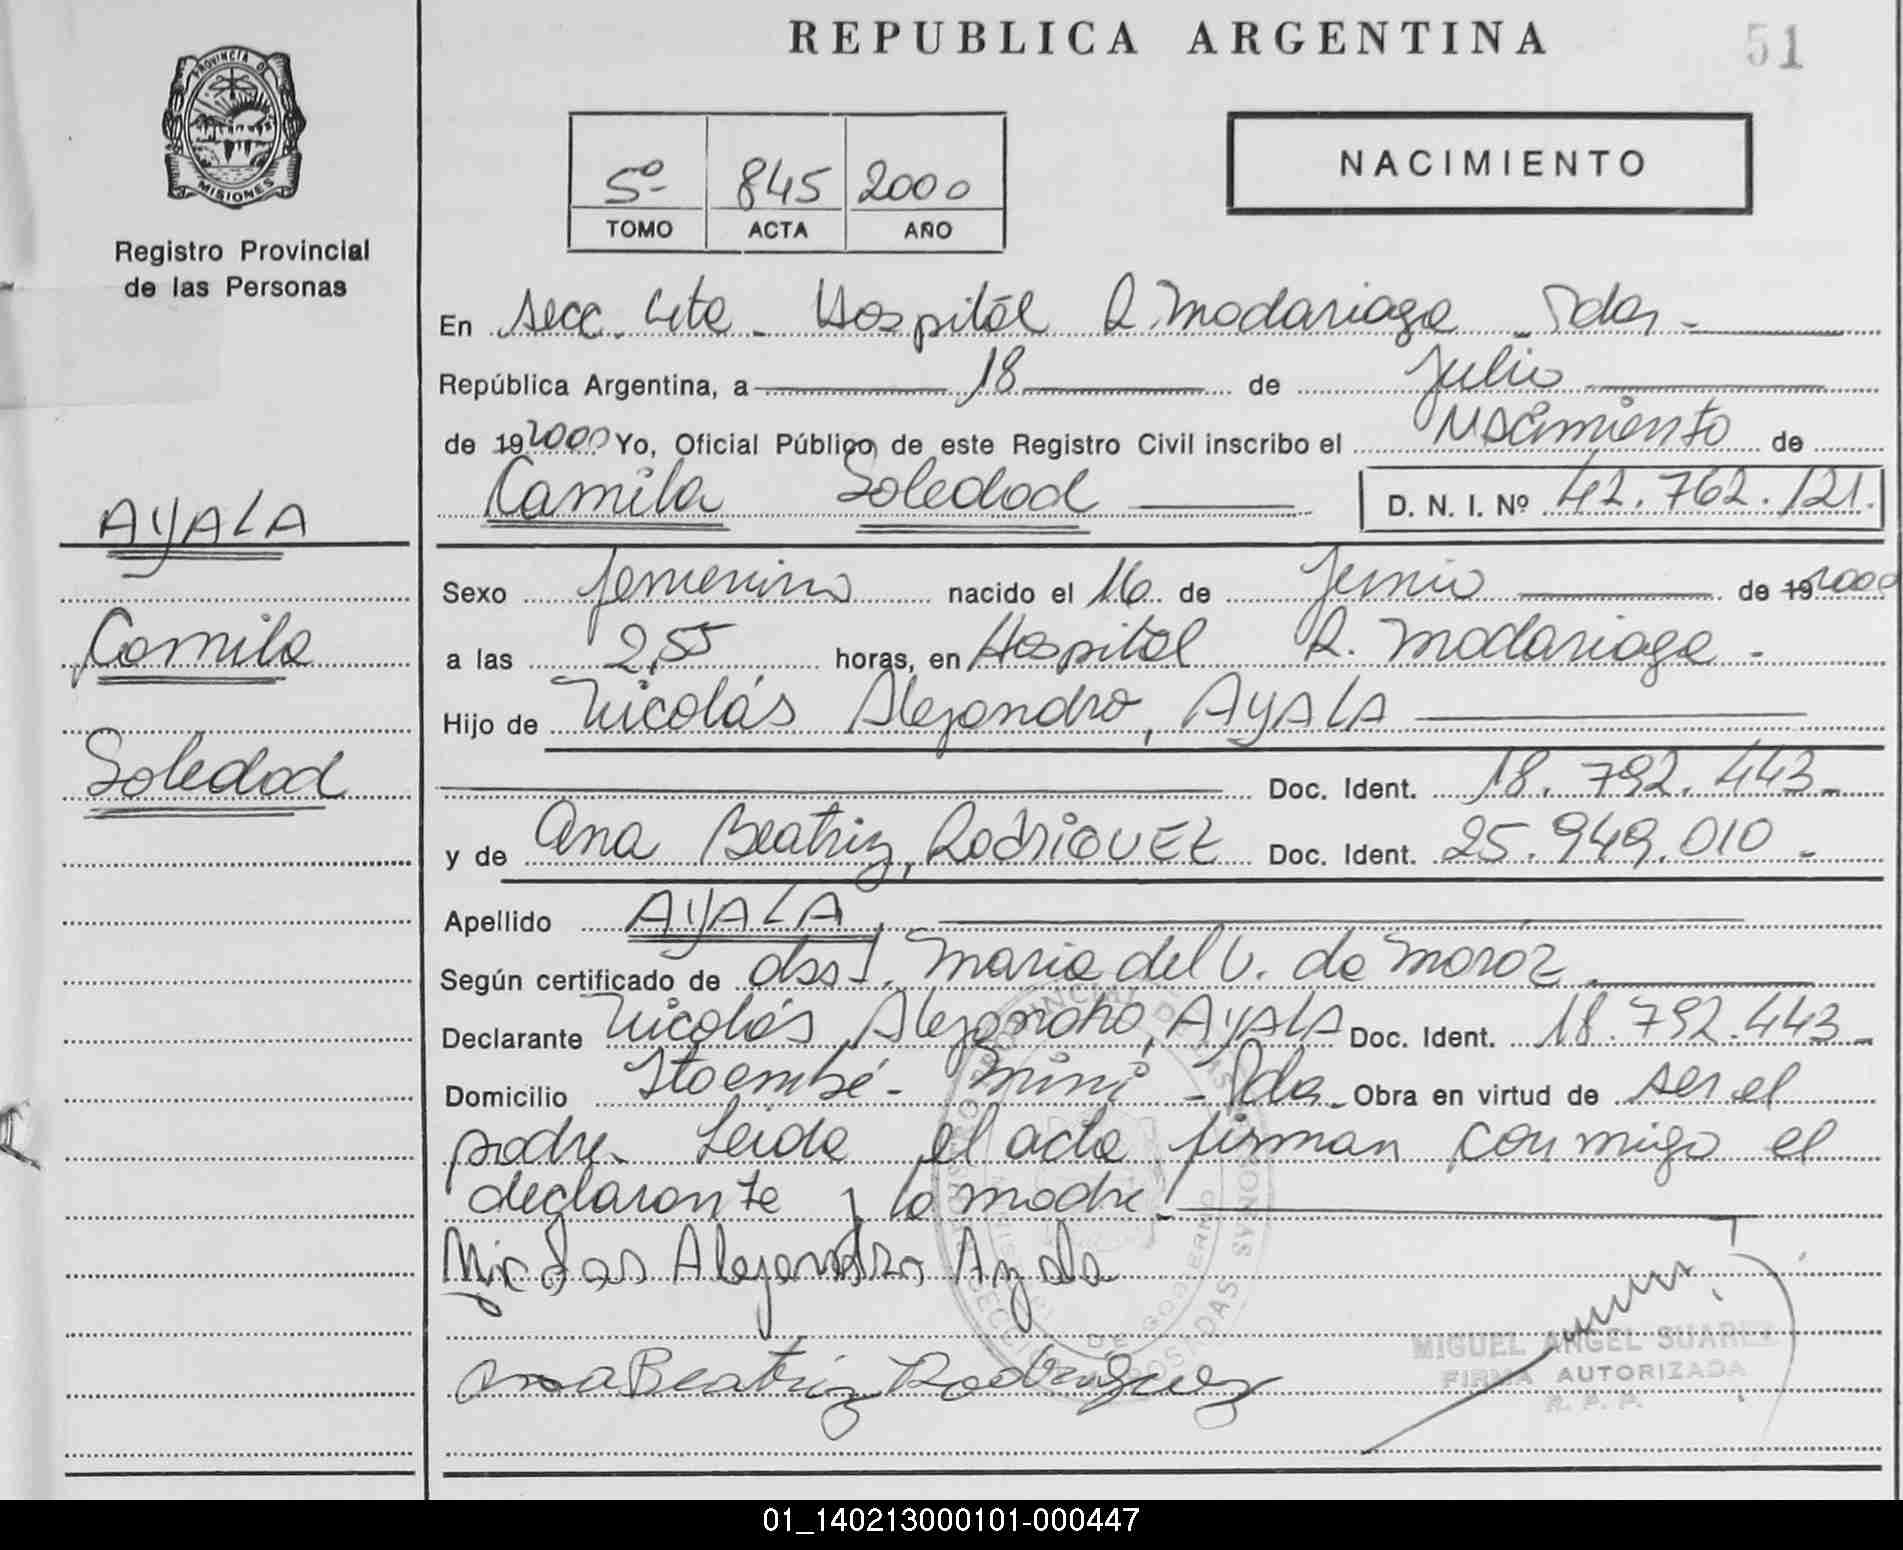 REPUBLICA ARGENTINA
51
PROVINCIA DE
MISIONES
Registro Provincial
de las Personas
5º 845 2000
TOMO ACTA AÑO
NACIMIENTO
AYALA
Camila
Soledad
En Secc. 4ta. Hospital R. Madariaga - Pdas -
República Argentina, a 18 de Julio
de 19 2000 Yo, Oficial Público de este Registro Civil inscribo el Nacimiento de
Camila Soledad D. N. I. Nº 42.762.121.
Sexo femenino nacido el 16 de Junio de 19 2000
a las 2,55 horas, en Hospital R. Madariaga -
Hijo de Nicolás Alejandro, AYALA
Doc. Ident. 18.792.443-
y de Ana Beatriz, RODRIGUEZ Doc. Ident. 25.949.010-
Apellido AYALA.
Según certificado de María del V. de Moróz
Declarante Nicolás Alejandro, AYALA Doc. Ident. 18.792.443-
Domicilio Itaembé - Miní - Pdas. Obra en virtud de ser el
padre. Leida el acta firman conmigo el
declarante y la madre.
Nicolas Alejandro Ayala
Ana Beatriz Rodriguez
MIGUEL ANGEL SUAREZ
FIRMA AUTORIZADA
R. P. P.
01_140213000101-000447